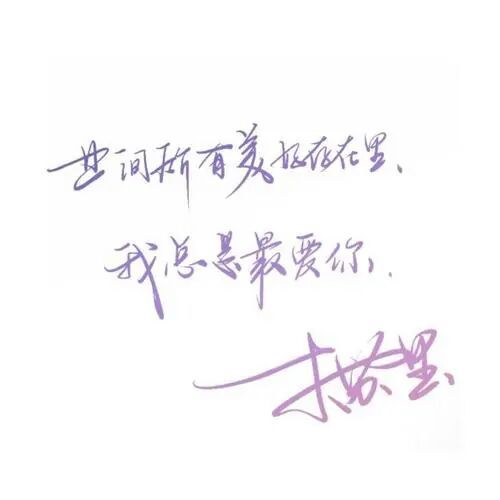 世间所有美好存在里、
我总是最爱你、